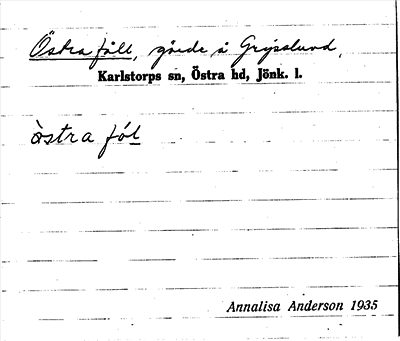 Östra fåll, gärde å Grysslund,
Karlstorps sn, Östra hd, Jönk. l.
òstra fó̀l
Annalisa Anderson 1935